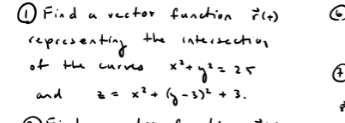 ① Find a vector function r⃗(t)
representing the intersection
of the curves x² + y² = 25
and z = x² + (y-3)² + 3.